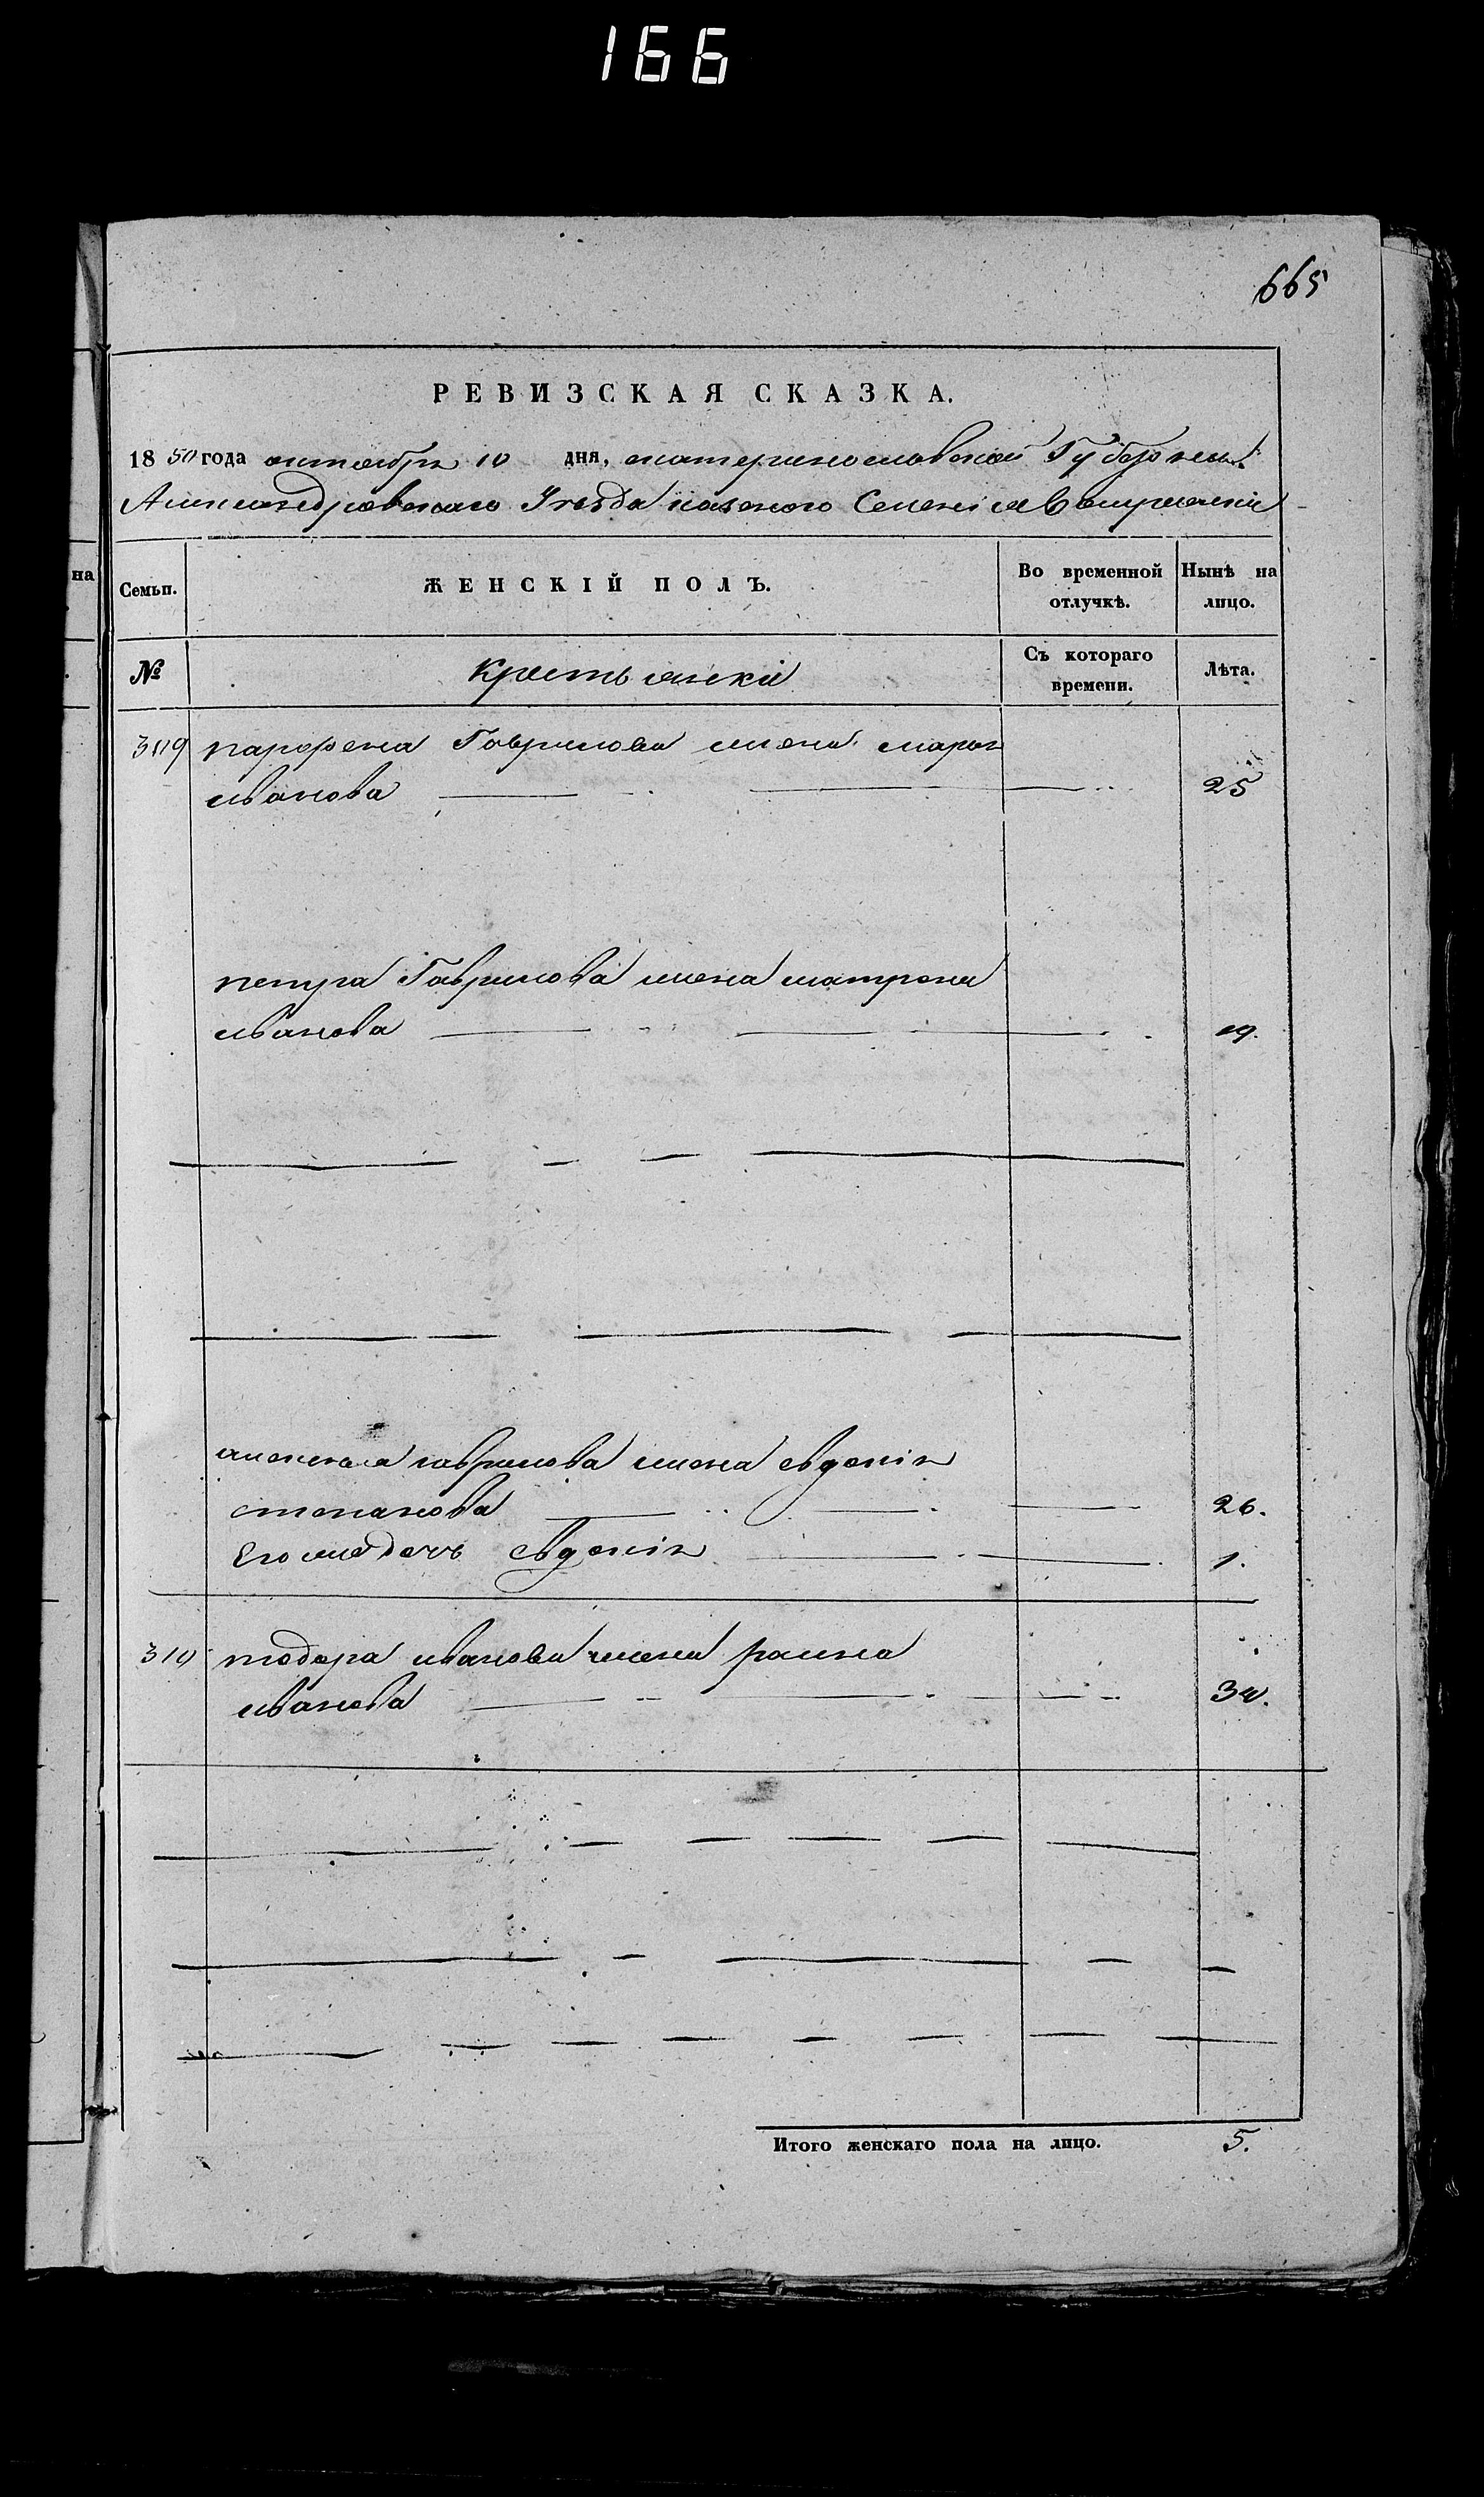 166
665
РЕВИЗСКАЯ СКАЗКА.
1850 года октября 10 дня, екатеринославской Губернии
Александровскаго Уезда казеного Селения
на
Семьи.
ЖЕНСКІЙ ПОЛЪ.
Во временной отлучкѣ.
Нынѣ на лицо.
№
Крестьянки
Съ котораго времени.
Лѣта.
309 парфена Гаврилова жена марья
иванова 25
петра Гаврилова жена матрона
иванова 19.
алексея гаврилова жена евдокия
степанова 26.
Его дочь евдокия 1.
310 тодора иванова жена
иванова
Итого женскаго пола на лицо. 5.